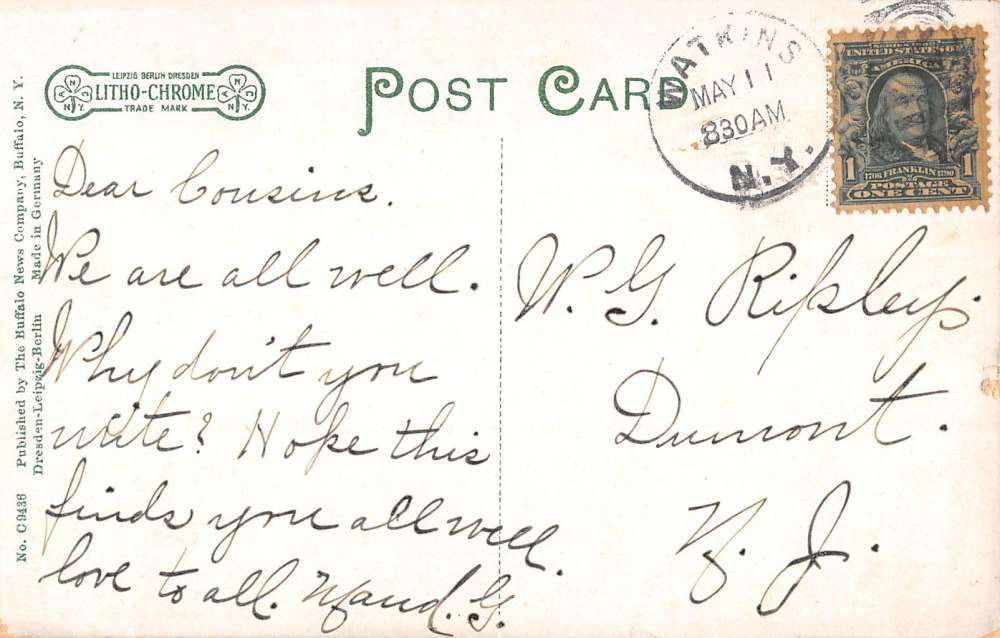 LEIPZIG BERLIN DRESDEN
LITHO-CHROME
TRADE MARK
N
A
N.Y.
N
A
N.Y.
POST CARD
WATKINS
MAY 11
830AM
N.Y.
SERIES 1902
UNITED STATES OF
AMERICA
1
1706 FRANKLIN 1790
1
POSTAGE
ONE CENT
No. C9436 Published by The Buffalo News Company, Buffalo, N. Y.
Dresden-Leipzig-Berlin Made in Germany
Dear Cousins.
We are all well.
Why don't you
write? Hope this
finds you all well.
love to all. Maud. G.
W. G. Ripley.
Dumont.
N. J.